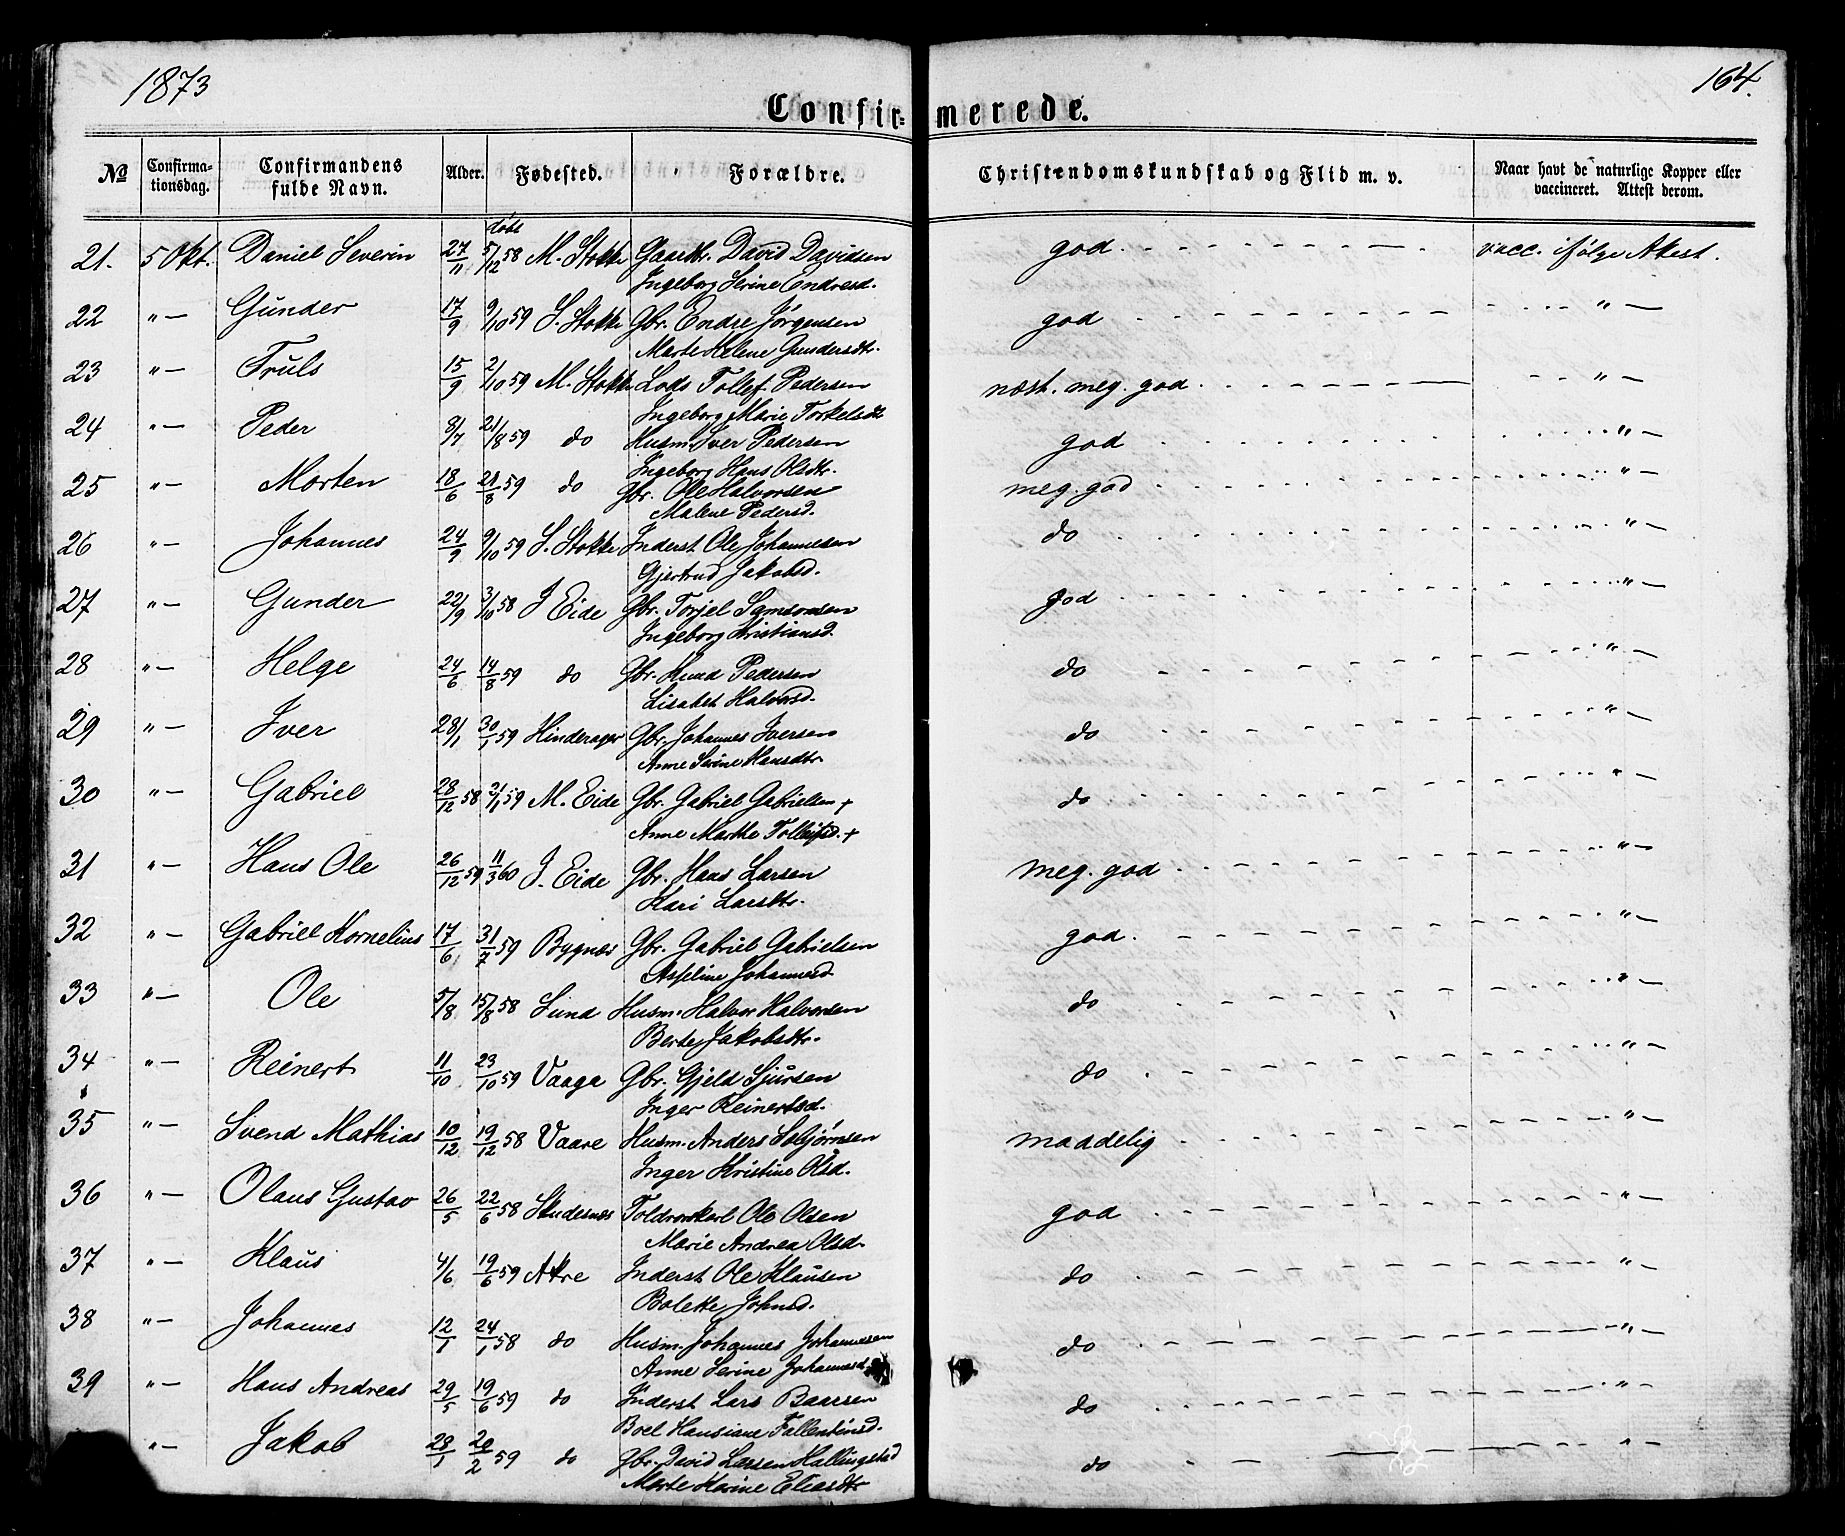 1873
164.
Confir= merede.
No Confirma-tionsdag. Confirmandens fulde Navn. Alder. Fødested. Forældre. Christendomskundskab og Flid m. v. Naar havt de naturlige Kopper eller vaccineret. Attest derom.
døbt
21. 5 Okt. Daniel Severin 27/11 5/12 58 M. Stokke Gaardbr. David Davidsen god vacc. ifølge Attest.
Ingeborg Serine Endresd.
22 "— Gunder 17/9 9/10 59 S. Stokke Gbr. Endre Jørgensen god "—
Marte Helene Gundersdtr.
23 "— Truls 15/9 2/10 59 M. Stokke Lods Tollef Pedersen næst. meg. god "—
Ingeborg Marie Torkelsdt
24 "— Peder 8/7 21/8 59 do Husm. Iver Pedersen god "—
Ingeborg Hans Olsdtr.
25 "— Morten 18/6 21/8 59 do Gbr. Ole Halvorsen meg. god "—
Malene Pedersd.
26 "— Johannes 24/9 9/10 59 S. Stokke Inderst Ole Johannesen do "—
Gjertrud Jakobsd.
27 "— Gunder 22/9 3/10 58 I Eide Gbr. Torjel Samsonsen god "—
Ingeborg Kristiansd.
28 "— Helge 24/6 14/8 59 do Gbr. Knud Pedersen do "—
Lisabet Halvorsd.
29 "— Iver 28/1 30/1 59 Hinderager Gbr. Johannes Iversen do "—
Anne Serine Hansdtr
30 "— Gabriel 28/12 58 2/1 59 M. Eide Gbr. Gabriel Gabrielsen + do "—
Anne Marthe Tolleifsd. +
31 "— Hans Ole 26/12 59 11/3 60 I. Eide Gbr. Hans Larsen meg. god "—
Kari Larsdtr.
32 "— Gabriel Kornelius 17/6 31/7 59 Bygnes Gbr. Gabriel Gabrielsen god "—
Asseline Johannesd
33 "— Ole 5/8 15/8 58 Lund Husm. Halvor Halvorsen do "—
Berte Jakobsdtr.
34 "— Reinert 11/10 23/10 59 Vaaga Gbr. Gjeld Sjursen do "—
Inger Reinertsd.
35 "— Svend Mathias 10/12 19/12 58 Vaare Husm. Anders Asbjørnsen maadelig "—
Inger Kristine Olsd.
36 "— Olaus Gustav 26/5 22/6 58 Skudesnes Ole Olsen god "—
Marie Andrea Olsd.
37 "— Klaus 4/6 19/6 59 Akre Inderst Ole Klausen do "—
Bolette Johnsd.
38 "— Johannes 12/1 24/1 58 do Husm. Johannes Johannesen do "—
Anne Serine Johannesd
39 "— Hans Andreas 29/5 19/6 59 do Inderst Lars Baarsen do "—
Boel Hansiane Fallentinsd.
"— Jakob 28/1 20/2 59 do Gbr. David Larsen Hallingstad do "—
Marte Karine Eliasdtr